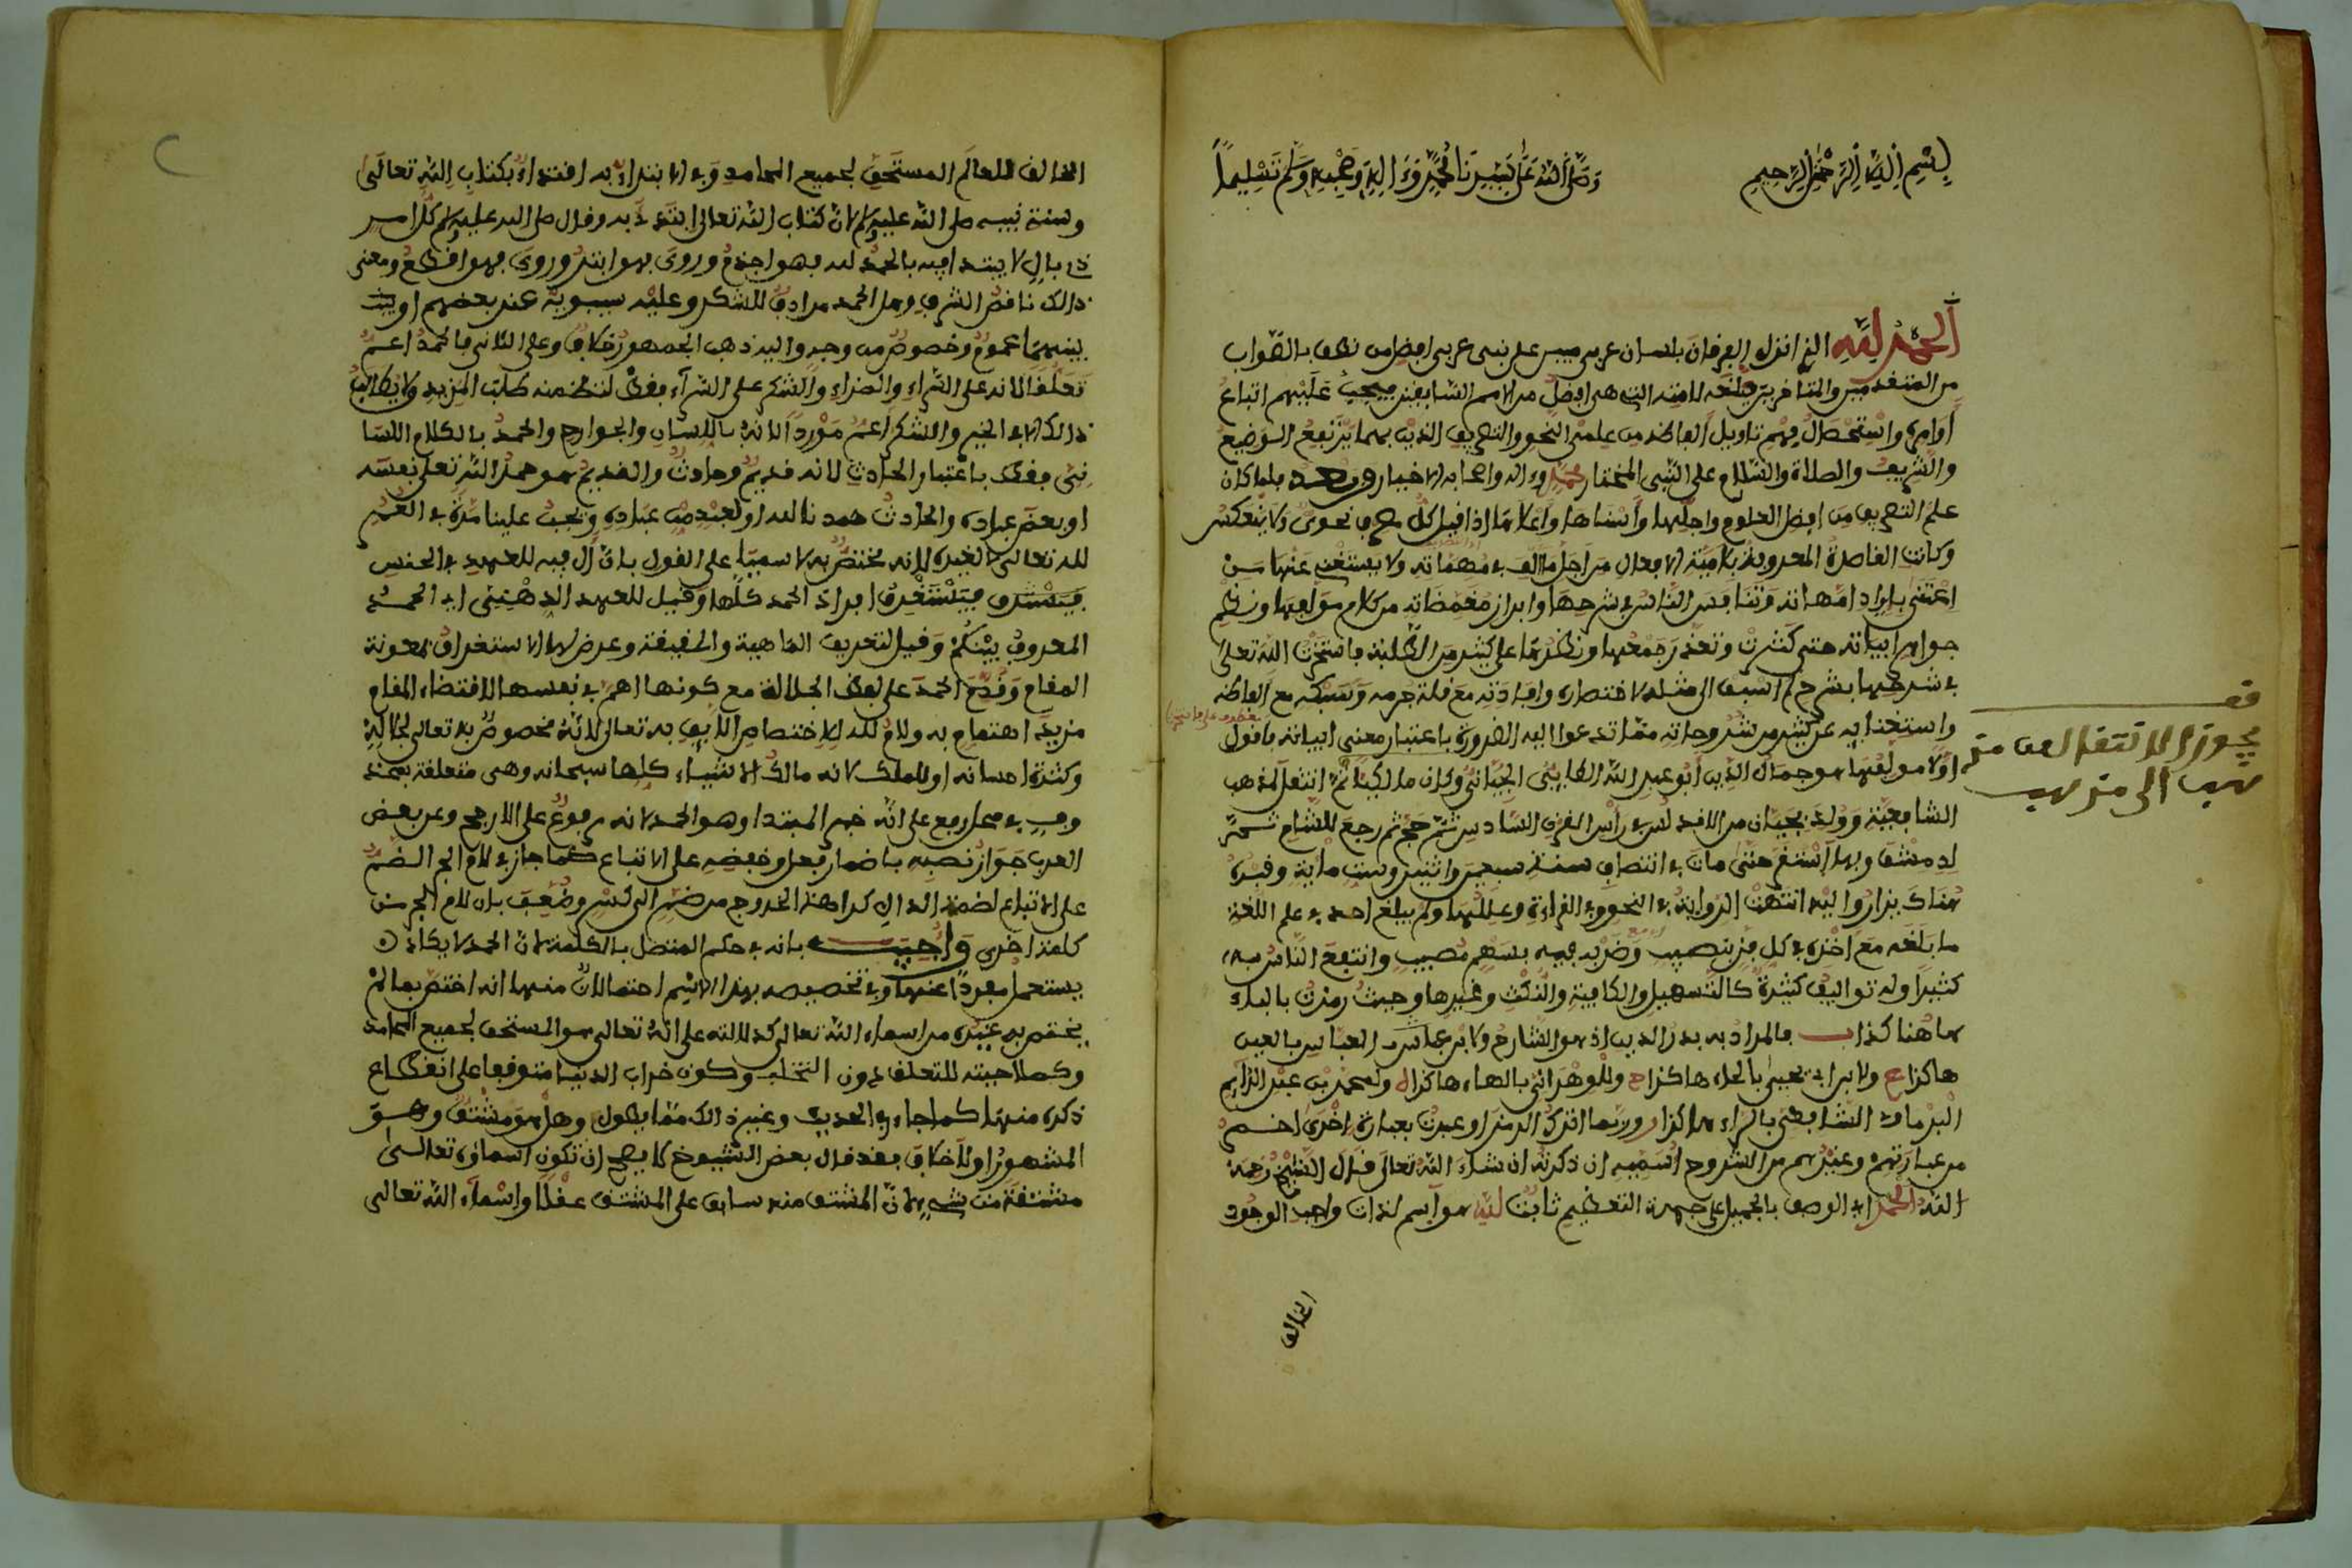 بسم الله الرحمن الرحيم وصلى الله على نبينا محمد وءاله وصحبه وسلم تسليما
الحمد لله الذي انزل الفرقان بلسان عربي مبين على نبي عربي افضل من نطق بالصواب
من المتقدمين والمتاخرين لامته التي هي افضل من الامم السابقين فيجب عليهم اتباع
أوامره واستحصال فهم تاويل ألفاظه من علمي النحو والتصريف الذين بهما يرتفع الوضيع
والشريف والصلاة والسلام على النبي المختار محمد وءاله واصحابه الاخيار وبعد فلما كان
علم التصريف من افضل العلوم واجلها وأسناها وأعلاها إذا قيل كل صرفي نحوي ولا ينعكس
وكانت القاصرة المعروفة بلامية الافعال من اجل ما ألف في مهماته ولا يستغني عنها من
اعتنى بإيراد امهاته وتنافس الناس في شرحها وابراز مغمضاته من كلام مؤلفها ونظم
جواهر ابياته حتى كثرت وتعذر جمعها ونظرها على كثير من الطلبة فاستخرت الله تعلى
في شرحها بشرح لم اسبق الى مثله لاختصاره وافادته مع قلة جرمه وسبكه مع ألفاظه
واستغنائه عن كثير من شروحاته مما تدعوا اليه الضرورة باعتبار معنى ابياته فاقول
اولا مؤلفها هو جمال الدين أبو عبد الله الطاءي الجياني وكان مالكيا ثم انتقل لمذهب
الشافعية وولد بجيان من الاندلس في رأس القرن السادس ثم حج ثم رجع للشام ثم
لدمشق وبها استقر حتى مات في انتصاف سنة سبعين واثنين وست مأية وقبره
هناك يزار واليه انتهت الرواية في النحو وفي القراءة وعللها ولم يبلغ احد في علم اللغة
ما بلغه مع اخذه في كل فن بنصيب وضربه فيه بسهم مصيب وانتفع الناس به
كثيرا وله تواليف كثيرة كالتسهيل والكافية والنكث وغيرها وحيث رمزت بالباء
هاهنا كذا ب فالمراد به بدر الدين اذ هو الشارح ولابن العباس بالعين
هاكذا ع ولابن يحيى بالحاء هاكذا ح وللوهراني بالهاء هاكذا ه ولمحمد بن عبد الدايم
البرماوي الشافعي بالراء هاكذا ر وربما اترك الرمز او عبرت بعبارة اخرى اخصر
من عبارتهم وغيرهم من الشروح أسميه ان ذكرته ان شاء الله تعالى قال الشيخ رحمه
الله الحمد اي الوصف بالجميل على جهة التعظيم ثابت لله هو آسم لذات واجب الوجود
الخالق
قف
يجوز الانتقال من مذ
هب الى مذهب
الخالق للعالم المستحق لجميع المحامد وفي الابتداء به اقتداء بكتاب الله تعالى
وسنة نبيه صلى الله عليه وسلم لان كتاب الله تعالى ابتدئ به وقال صلى الله عليه وسلم كل امر
ذي بال لا يبتدا فيه بالحمد لله فهو اجذم وروي فهو ابتر وروي فهو اقطع ومعنى
ذالك ناقص الشرف وهل الحمد مرادف للشكر وعليه سيبويه عند بعضهم او
بينهما عموم وخصوص من وجه واليه ذهب الجمهور خلاف وعلى الثاني فالحمد اعم
تعلقا لانه على السراء والضراء والشكر على السرآء فقط لتظمنه طلب المزيد ولا يطالب
ذالك الا في الخير والشكر اعم موردا لانه باللسان والجوارح والحمد بالكلام اللسا
ني فقط باعتبار الحادث لانه قديم وحادث والقديم هو حمد الله تعلى نفسه
او بعض عباده والحادث حمدنا لله او لعبد من عباده ويجب علينا مرة في العمر
لله تعالى لا لغيره لانه مختص به لا سميا على القول بان أل فيه للعهد في الجنس
فيستغرق افراد الحمد كلها وقيل للعهد الذهني اي الحمد
المعروف بينكم وقيل لتعريف الماهية والحقيقة وعرض لها الاستغراق بمعونة
المقام وقدم الحمد على لفظ الجلالة مع كونها اهم في نفسها لاقتضاء المقام
مزيد اهتمام به ولام لله للاختصاص اللايق به تعالى لانه مخصوص به تعالى لجلاله
وكثرة احسانه او للملك لانه مالك الاشياء كلها سبحانه وهي متعلقة بمحذ
وف في محل رفع على انه خبر المبتدا وهو الحمد لانه مرفوع على الارجح وعن بعض
العرب جواز نصبه باضمار فعل وخفضه على الاتباع كما جاز في لام الجر الضم
على الاتباع لضمة الدال كراهة الخروج من ضم الى كسر وضعف بان لام الجر من
كلمة اخرى وأجيب بانه في حكم المتصل بالكلمة لان الحمد لا يكاد
يستعمل مفردا عنها وفي تخصيصه بهذا الاسم احتمالان منها انه اختص بما لم
يختص به غيره من اسماء الله تعالى كدلالته على انه تعالى هو المستحق لجميع المحامد
وكصلاحيته للتعلق دون التخلق وكون خراب الدنيا متوقفا على انقطاع
ذكره منها كما جاء في الحديث وغير ذالك مما يطول وهل هو مشتق وهو
المشهور او لا خلاف فقد قال بعض الشيوخ لا يصح ان تكون اسماؤه تعالى
مشتقة من شيء لان المشتق منه سابق على المشتق عقلا واسماء الله تعالى